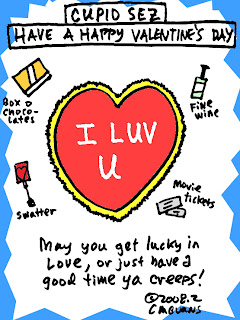 CUPID SEZ
HAVE A HAPPY VALENTINE'S DAY
Box o
choco-
lates
Fine
wine
I LUV
U
Swatter
Movie
tickets
May you get lucky in
Love, or just have a
good time ya creeps!
©2008.2
CMBURNS